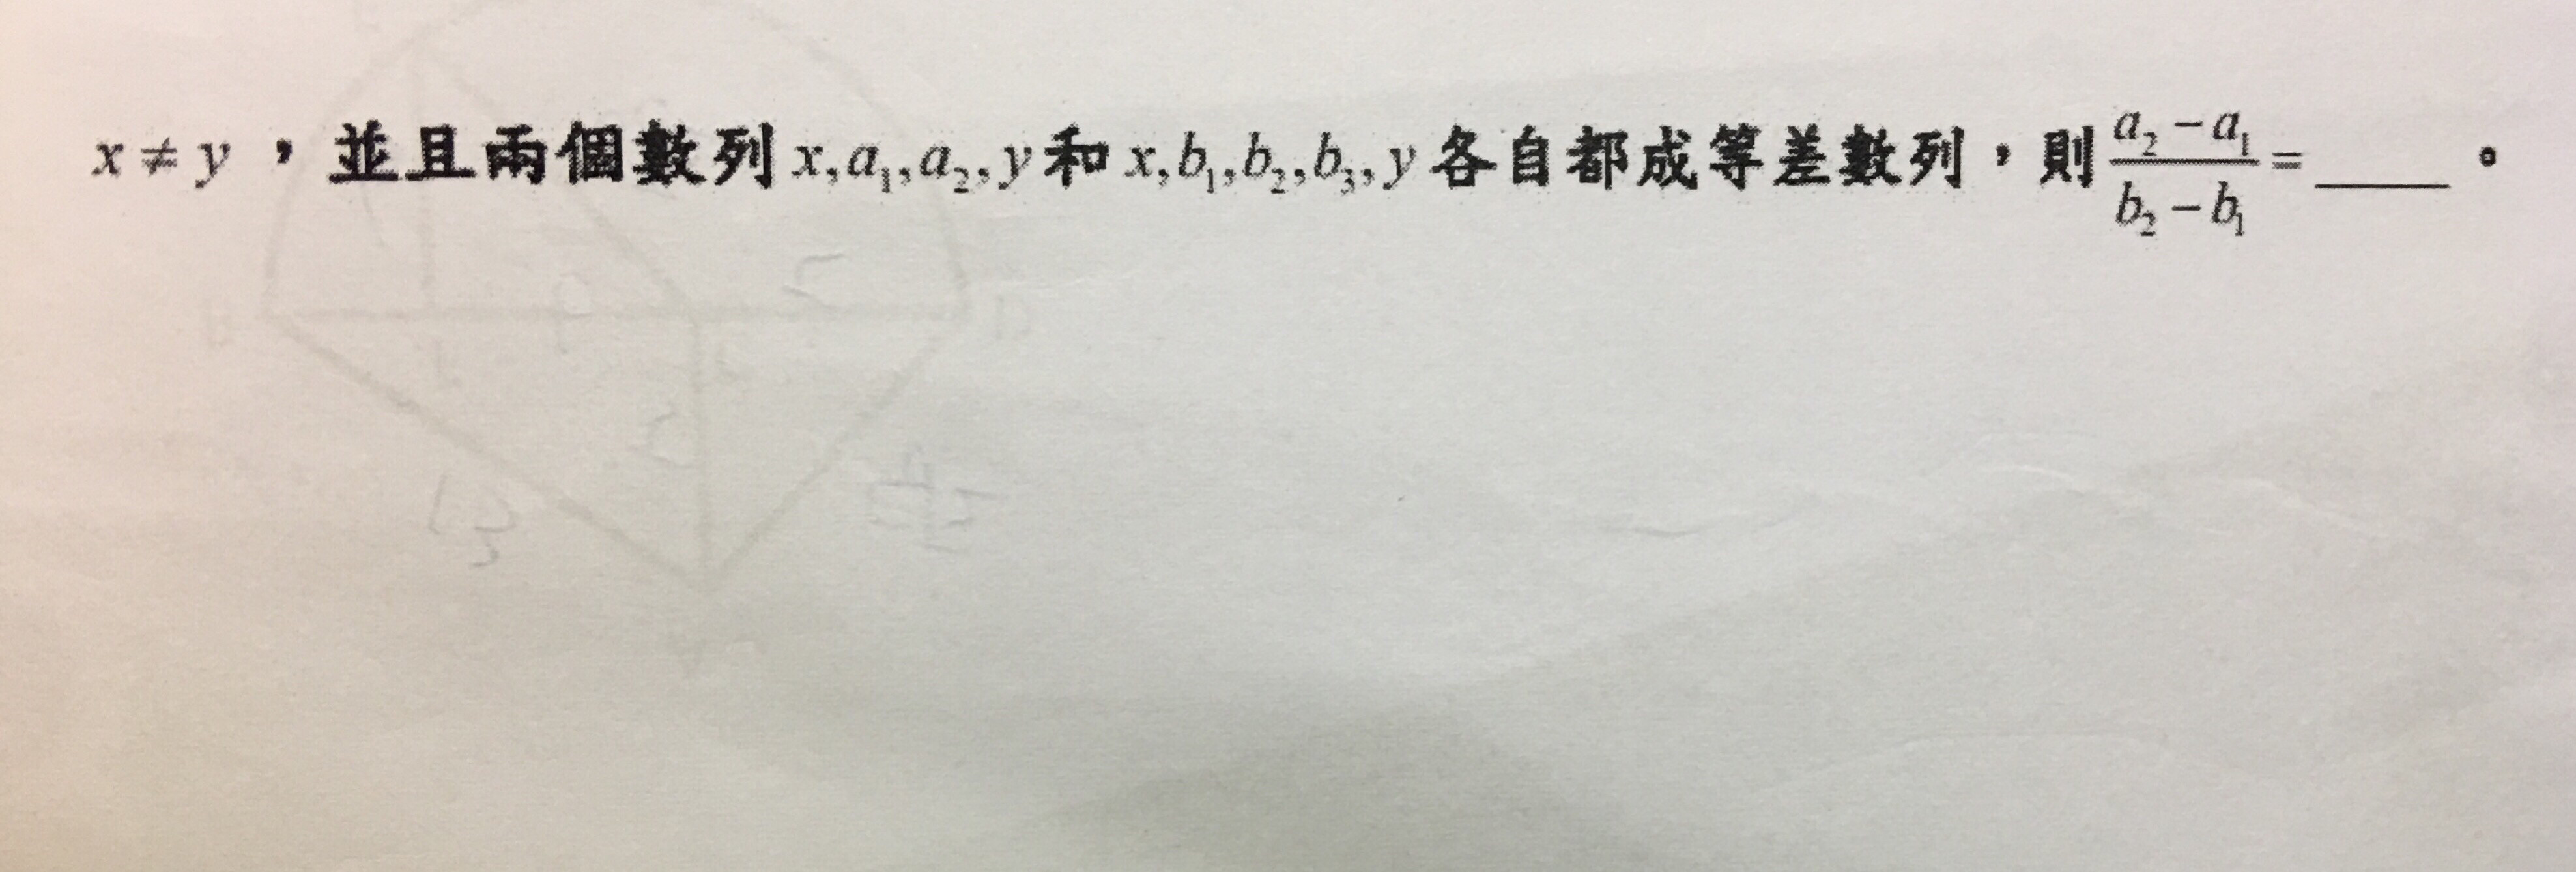 x ≠ y，並且兩個數列 x, a₁, a₂, y 和 x, b₁, b₂, b₃, y 各自都成等差數列，則 (a₂ − a₁)/(b₂ − b₁) = ____。